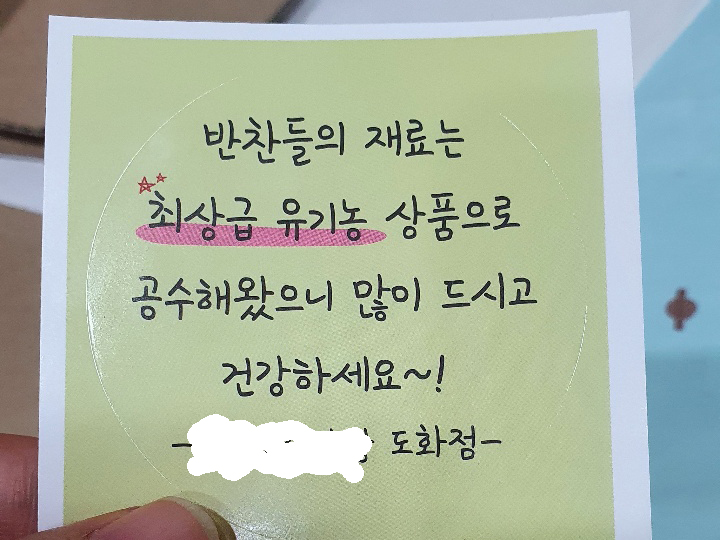 반찬들의 재료는
최상급 유기농 상품으로
공수해왔으니 많이 드시고
건강하세요~!
- 도화점-